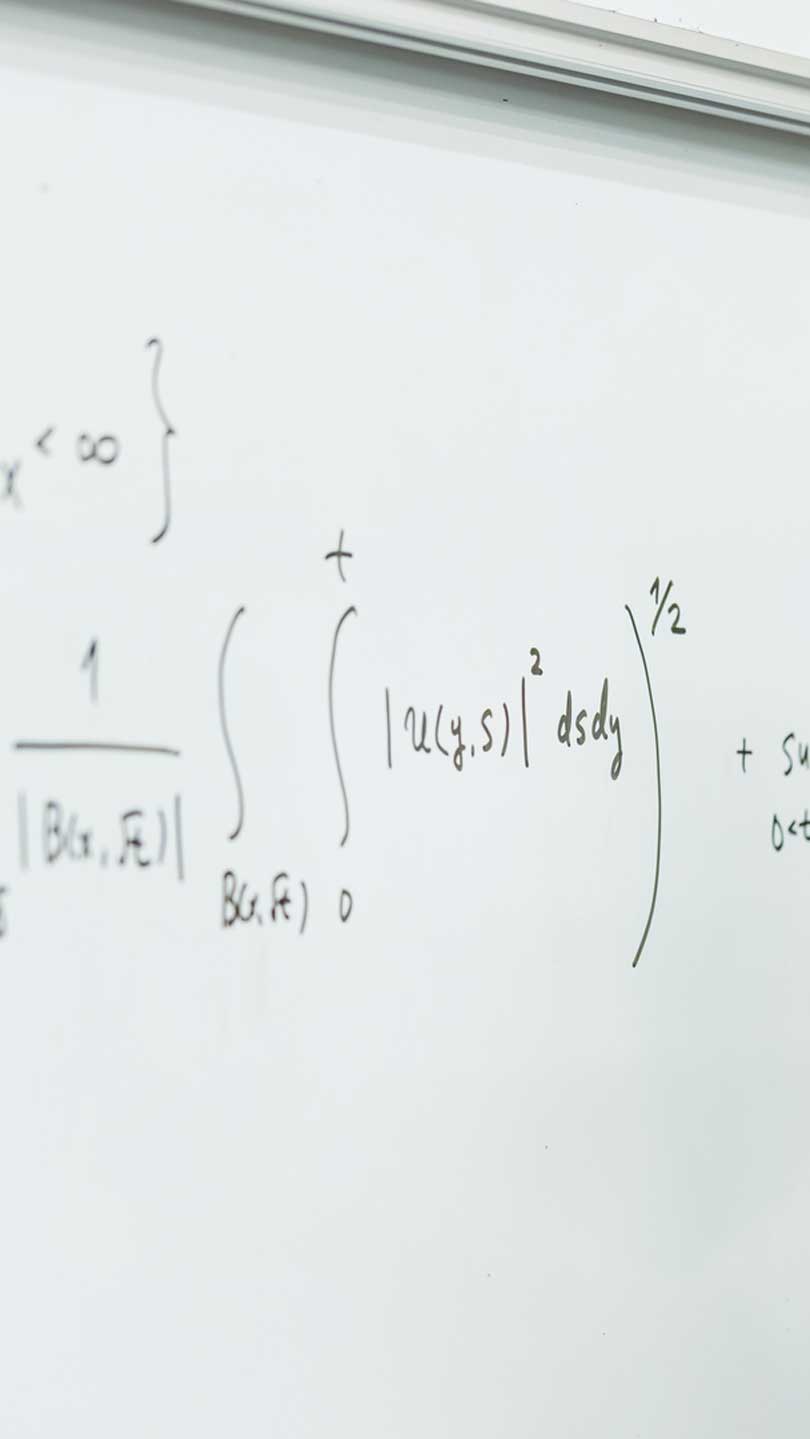 x < ∞ }
1/|B(x, √t)| ∫_{B(x, √t)} ∫_0^t |u(y,s)|² dsdy )^{1/2} + su
0<t